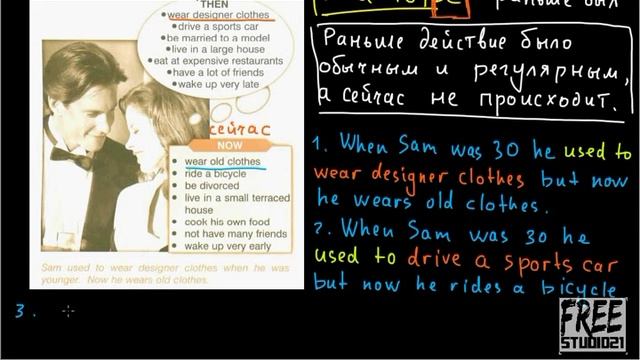 THEN
•wear designer clothes
•drive a sports car
•be married to a model
•live in a large house
•eat at expensive restaurants
•have a lot of friends
•wake up very late
сейчас
NOW
• wear old clothes
• ride a bicycle
• be divorced
• live in a small terraced
house
• cook his own food
• not have many friends
• wake up very early
Sam used to wear designer clothes when he was
younger. Now he wears old clothes.
раньше был
Раньше действие было
обычным и регулярным,
а сейчас не происходит.
1. When Sam was 30 he used to
wear designer clothes but now
he wears old clothes.
2. When Sam was 30 he
used to drive a sports car
but now he rides a bicycle
3.
FREE
STUDIO21